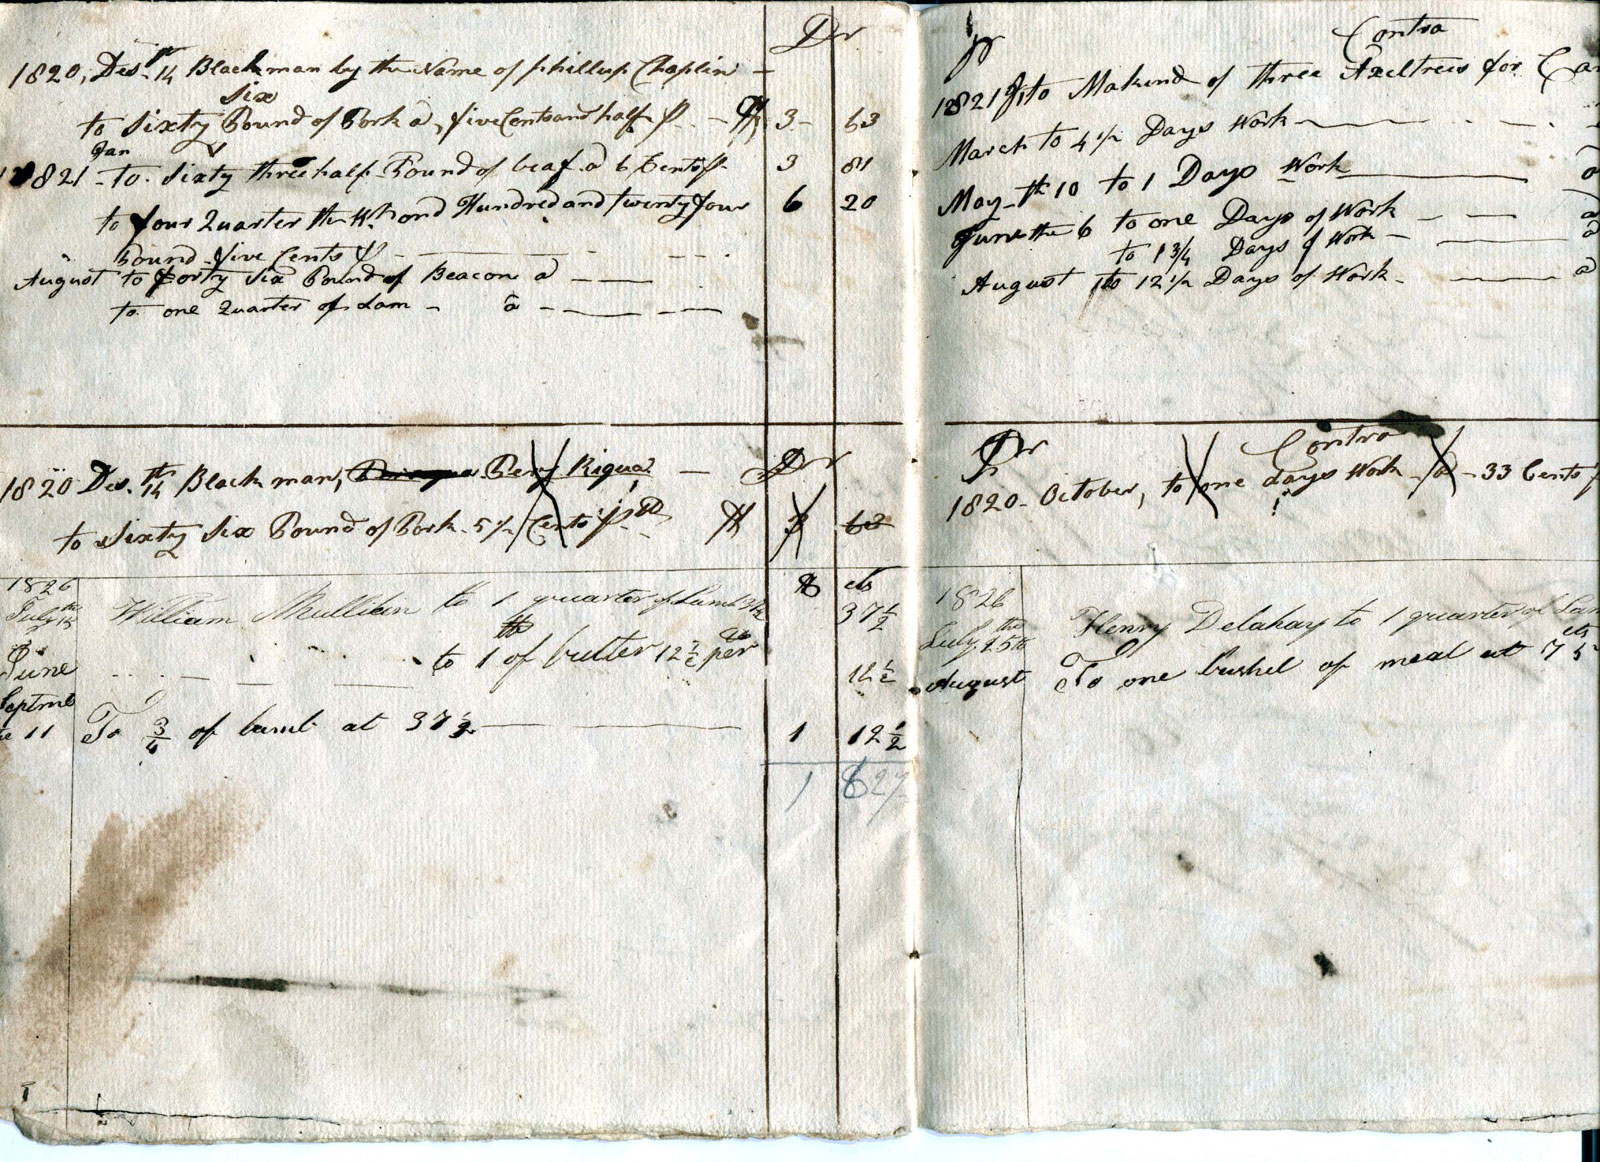 Dr
1820, Des. th 14 Black man by the Name of phillup Chaplin -
six
to sixty Pound of Pork a, five Cents and half p - $ 3 - 63
Jan
1821 - to. sixty three half Pound of beaf a 6 Cents p 3 81
to four Quarter the Wt. ond Hundred and twenty four 6 20
Pound five Cents p
August to forty six Pound of Beacon a
to one Quarter of Lam - a
1820 Des. th 14 Black man, Pery Rigua - Dr
to sixty six Pound of Pork 5 1/2 Cents p $ 3 63
1826 $ cts
July th 15 William Mullikin to 1 quarter of Lamb 37 1/2
June to 1 lb of butter 12 1/2 cts per 12 1/2
Septme
11 To 3/4 of lamb at 37 1/2 1 12 1/2
1 62
Contra
1821 to Makind of three Axeltrees for
March to 4 1/2 Days Work
May - th 10 to 1 Days Work a
June the 6 to one Days of Work - a
to 1 3/4 Days of Work - a
August to 12 1/2 Days of Work - a
Dr Contra
1820 - October, to one days Work - a - 33 Cents p
1826
July the 25th Henry Delahay to 1 quarter of Lam
August To one bushel of meal at 75 cts